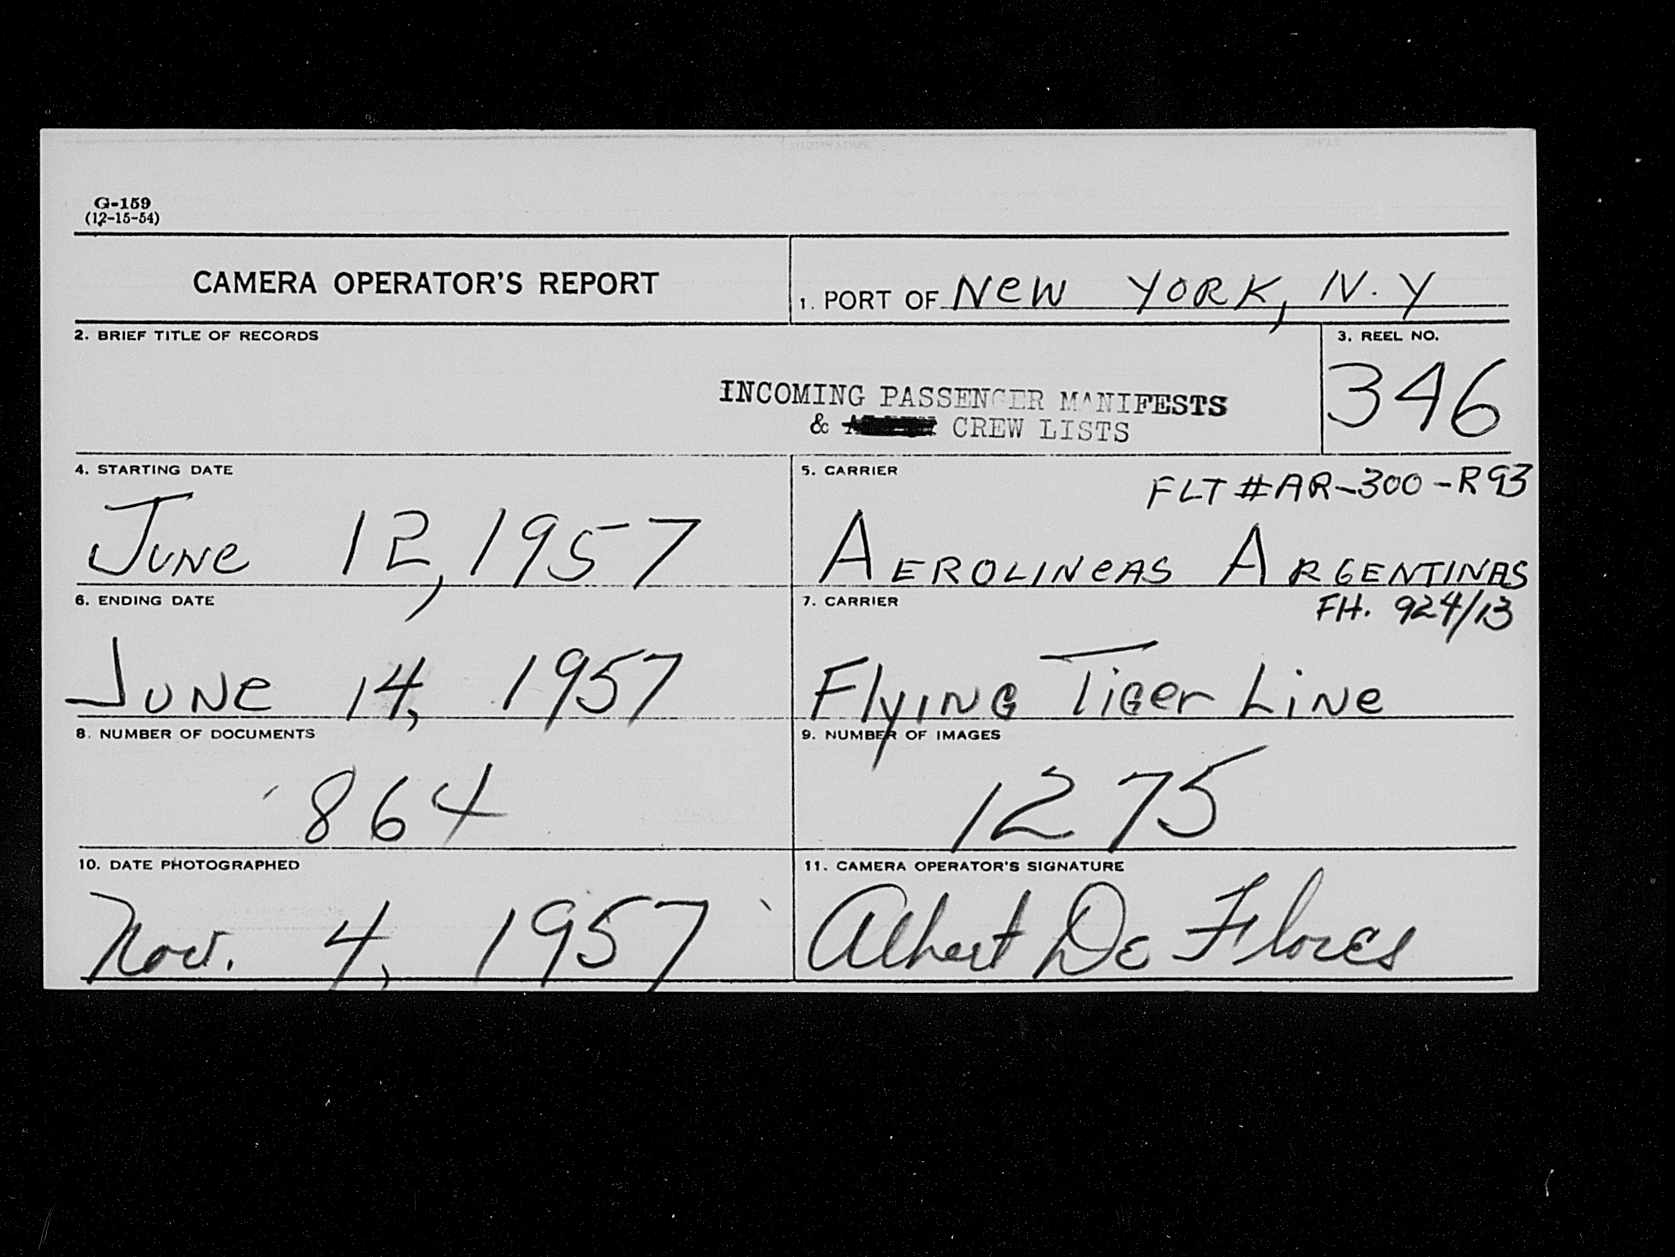 G-159
(12-15-54)
CAMERA OPERATOR'S REPORT
1. PORT OF New York, N.Y
2. BRIEF TITLE OF RECORDS
INCOMING PASSENGER MANIFESTS
& CREW LISTS
3. REEL NO.
346
4. STARTING DATE
June 12, 1957
5. CARRIER
FLT #AR-300-R93
AEROLINEAS ARGENTINAS
6. ENDING DATE
June 14, 1957
7. CARRIER
FH. 924/13
Flying Tiger Line
8. NUMBER OF DOCUMENTS
864
9. NUMBER OF IMAGES
1275
10. DATE PHOTOGRAPHED
Nov. 4, 1957
11. CAMERA OPERATOR'S SIGNATURE
Albert De Flores